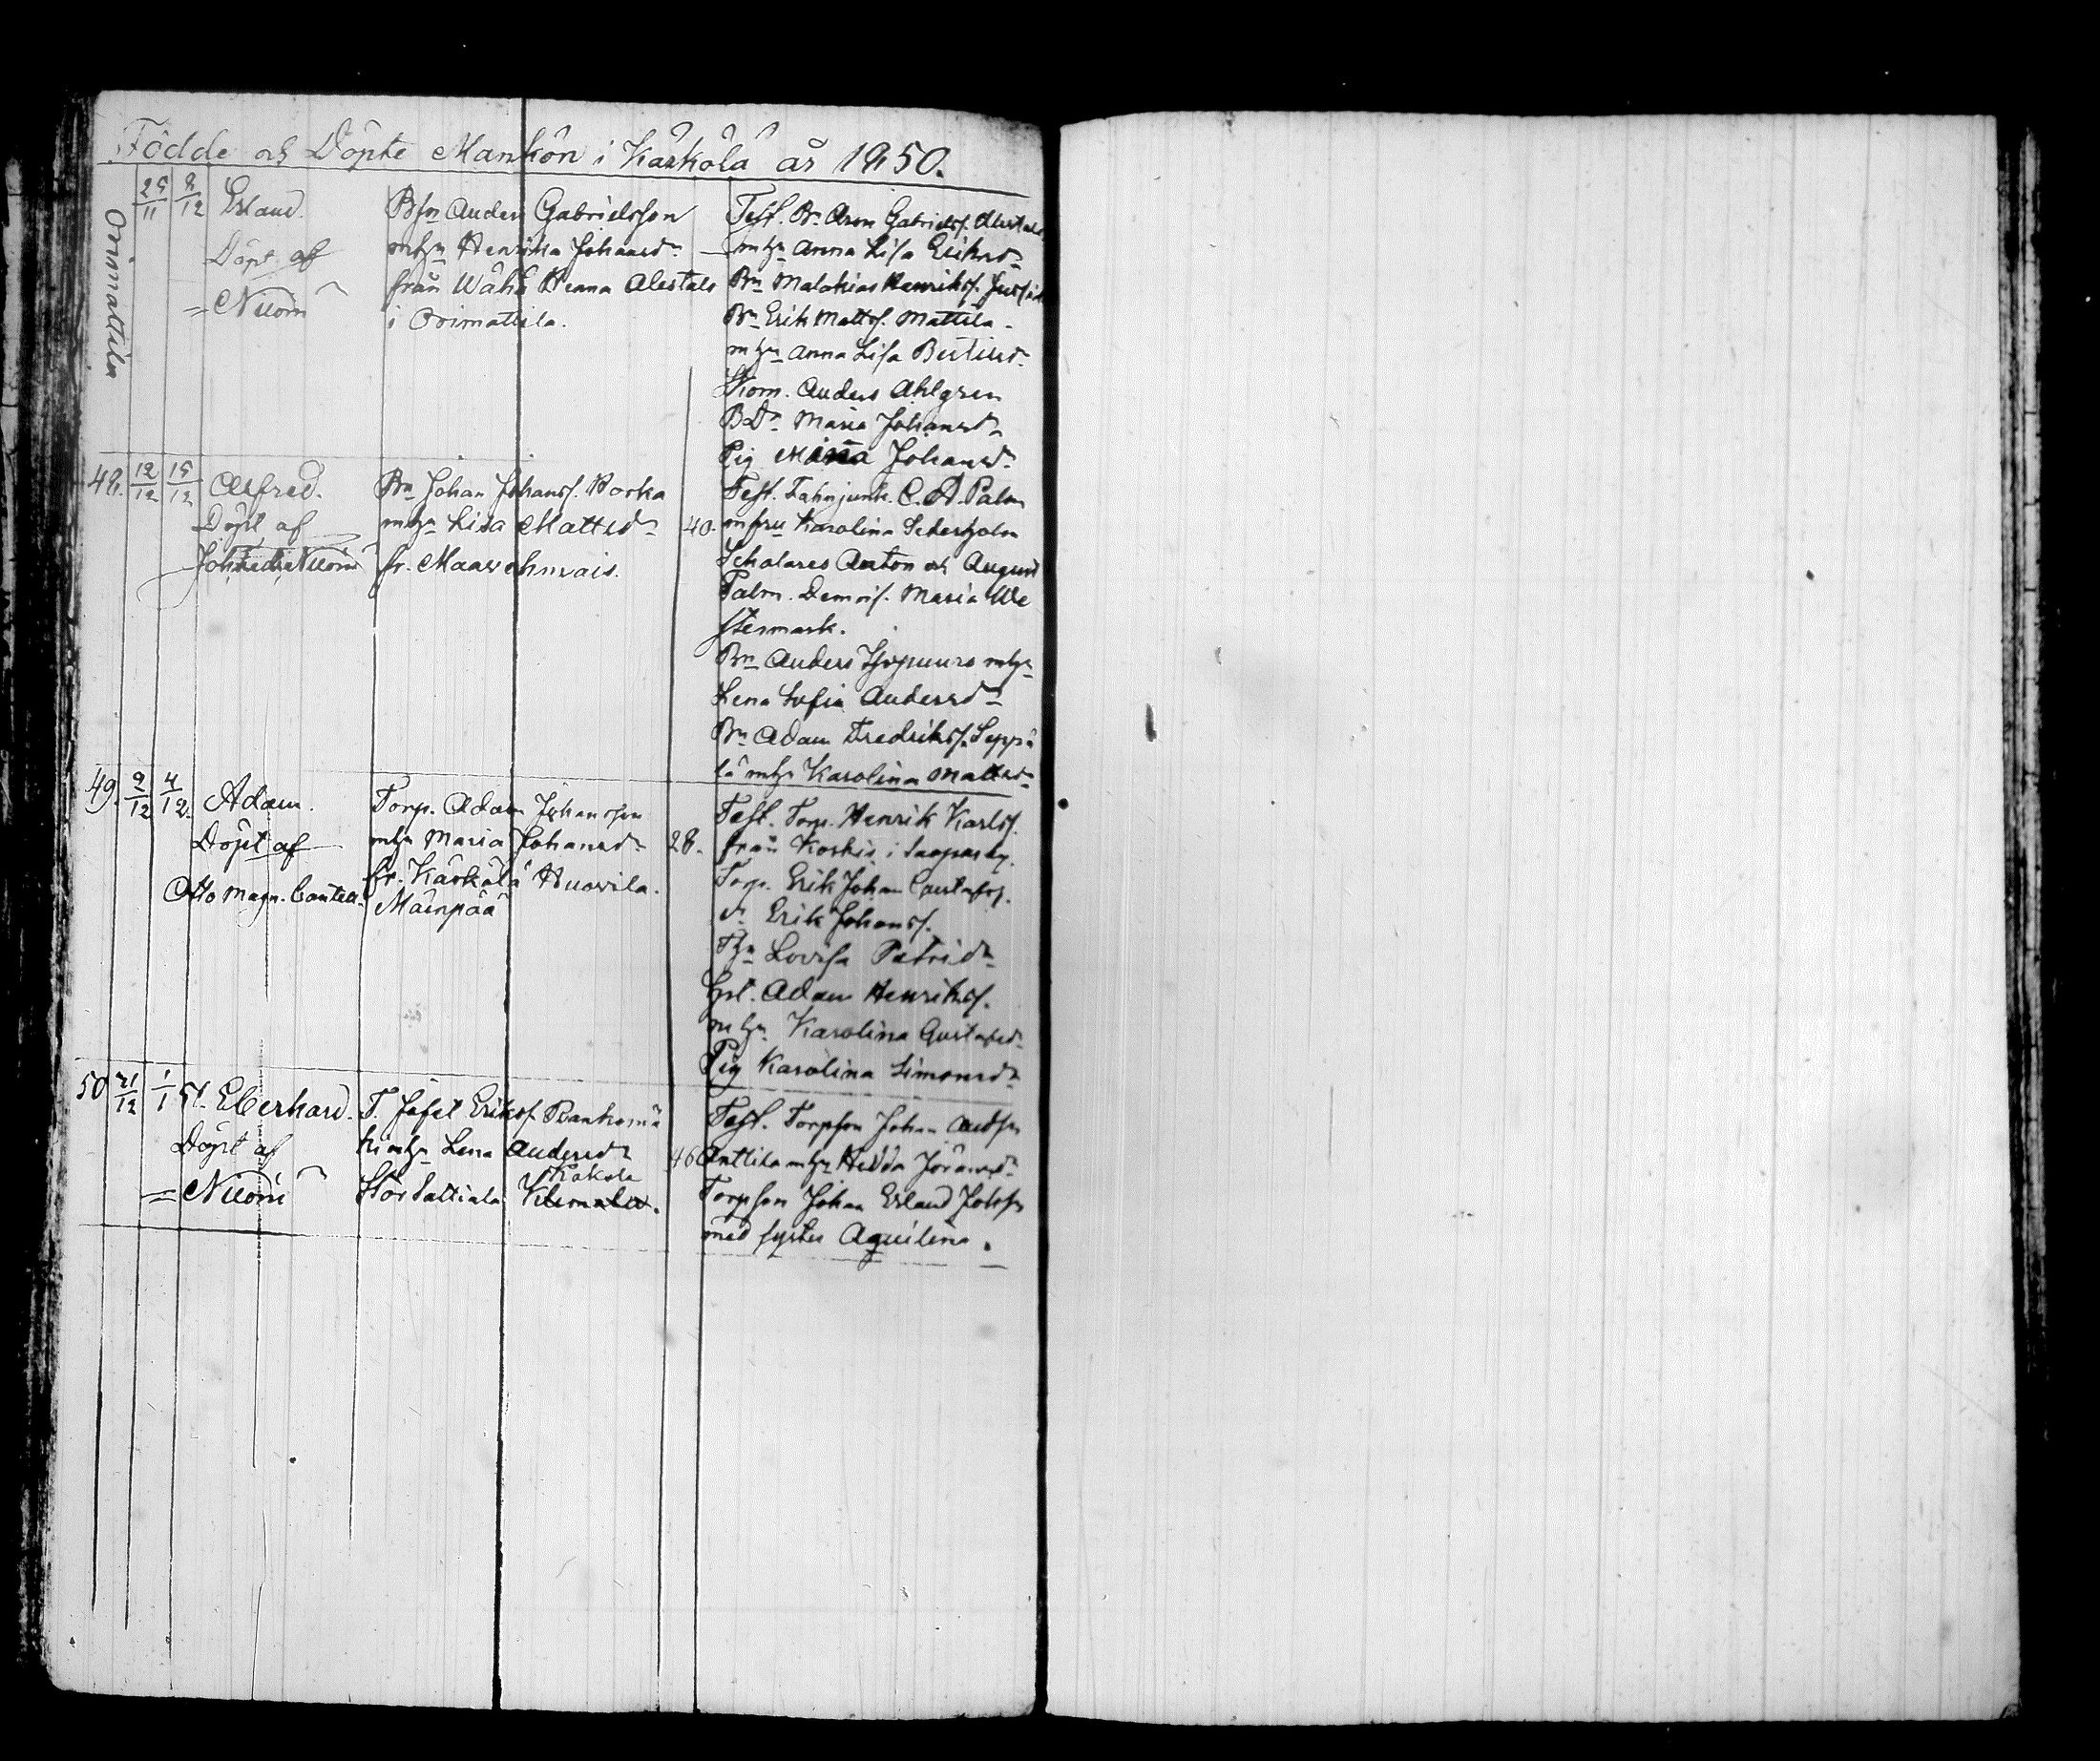 Födde och Döpte Mankön i Kärkölä år 1850.
Orimattila
25/11 8/12 Erland.
Döpt af
= Nicorin
Bsn Anders Gabrielsson
mhu Henrika Johansdr
från Wähä Henna Alestalo
i Orimattila.
Test. Bn Aron Gabrielss. Alestalo
mhu Anna Lisa Eriksdr
Bn Malakias Henrikss.
Bn Erik Matts. Mattila
mhu Anna Lisa
Anders Ahlgren
BDr Maria Johansdr
Pig Maria Johansdr
48. 12/12 15/12 Alfred.
Döpt af
Bn Johan Johanss.
mhu Lisa Mattsdr 40.
fr. Maawehmais.
Test. Fahnjunk. C. A. Palm
m fru Karolina Sederholm
Scholares Anton och August
Palm. Demois. Maria We
stermark.
Bn Anders mhu
Lena Sofia Andersdr
Bn Adam Fredrikss. Seppä
lä mhu Karolina Mattsdr
49. 2/12 4/12. Adam.
Döpt af
Otto Magn.
Torp. Adam Johansson
mhu Maria Johansdr 28.
fr. Kärkölä Huowila.
Mäenpää
Test. Torp. Henrik Karlss.
från Koskis i
Torp. Erik Johan Gustafss.
dr Erik Johanss.
Thu Lovisa
Adam Henrikss.
mhu Karolina Gustafsdr
Pig Karolina Simonsdr
50 21/12 1/1 51. Eberhard.
Döpt af
= Nicorin
T. Jofel Erikss.
ki mhu Lena Andersdr 46
Kakola
Stor Sattiala
Test. Torpson Johan Andss
Anttila mhu Hedda
Torpson Johan Erland Johss
med syster Aquilina.